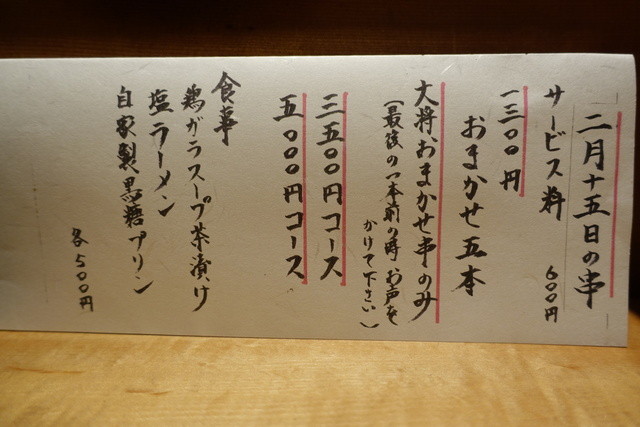 二月十五日の串
サービス料 600円
一三〇〇円
おまかせ五本
大将おまかせ串のみ
(最後の一本前の時お声を
かけて下さい)
三五〇〇円コース
五〇〇〇円コース
食事
鶏ガラスープ茶漬け
塩ラーメン
自家製黒糖プリン
各500円